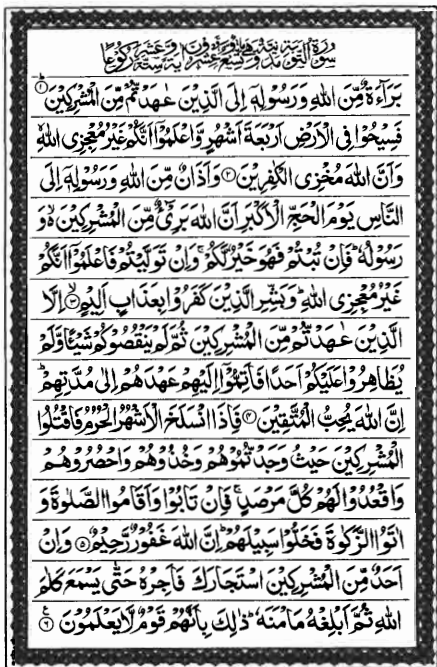 سورة التوبة مدنية وهى مائة وتسع وعشرون اية وستة عشر ركوعا
بَرَآءَةٌ مِّنَ اللهِ وَرَسُوْلِهٖٓ اِلَى الَّذِيْنَ عٰهَدْتُّمْ مِّنَ الْمُشْرِكِيْنَ ۱
فَسِيْحُوْا فِى الْاَرْضِ اَرْبَعَةَ اَشْهُرٍ وَّاعْلَمُوْٓا اَنَّكُمْ غَيْرُ مُعْجِزِى اللهِ
وَاَنَّ اللهَ مُخْزِى الْكٰفِرِيْنَ ۲ وَاَذَانٌ مِّنَ اللهِ وَرَسُوْلِهٖٓ اِلَى
النَّاسِ يَوْمَ الْحَجِّ الْاَكْبَرِ اَنَّ اللهَ بَرِیْٓءٌ مِّنَ الْمُشْرِكِيْنَ ۙ وَ
رَسُوْلُهٗ ؕ فَاِنْ تُبْتُمْ فَهُوَ خَيْرٌ لَّكُمْ ۚ وَاِنْ تَوَلَّيْتُمْ فَاعْلَمُوْٓا اَنَّكُمْ
غَيْرُ مُعْجِزِى اللهِ ؕ وَبَشِّرِ الَّذِيْنَ كَفَرُوْا بِعَذَابٍ اَلِيْمٍ ۳ ۙ اِلَّا
الَّذِيْنَ عٰهَدْتُّمْ مِّنَ الْمُشْرِكِيْنَ ثُمَّ لَمْ يَنْقُصُوْكُمْ شَيْـًٔا وَّلَمْ
يُظَاهِرُوْا عَلَيْكُمْ اَحَدًا فَاَتِمُّوْٓا اِلَيْهِمْ عَهْدَهُمْ اِلٰى مُدَّتِهِمْ ؕ
اِنَّ اللهَ يُحِبُّ الْمُتَّقِيْنَ ۴ فَاِذَا انْسَلَخَ الْاَشْهُرُ الْحُرُمُ فَاقْتُلُوا
الْمُشْرِكِيْنَ حَيْثُ وَجَدْتُّمُوْهُمْ وَخُذُوْهُمْ وَاحْصُرُوْهُمْ
وَاقْعُدُوْا لَهُمْ كُلَّ مَرْصَدٍ ۚ فَاِنْ تَابُوْا وَاَقَامُوا الصَّلٰوةَ وَ
اٰتَوُا الزَّكٰوةَ فَخَلُّوْا سَبِيْلَهُمْ ؕ اِنَّ اللهَ غَفُوْرٌ رَّحِيْمٌ ۵ وَاِنْ
اَحَدٌ مِّنَ الْمُشْرِكِيْنَ اسْتَجَارَكَ فَاَجِرْهُ حَتّٰى يَسْمَعَ كَلٰمَ
اللهِ ثُمَّ اَبْلِغْهُ مَاْمَنَهٗ ؕ ذٰلِكَ بِاَنَّهُمْ قَوْمٌ لَّا يَعْلَمُوْنَ ۶ ع